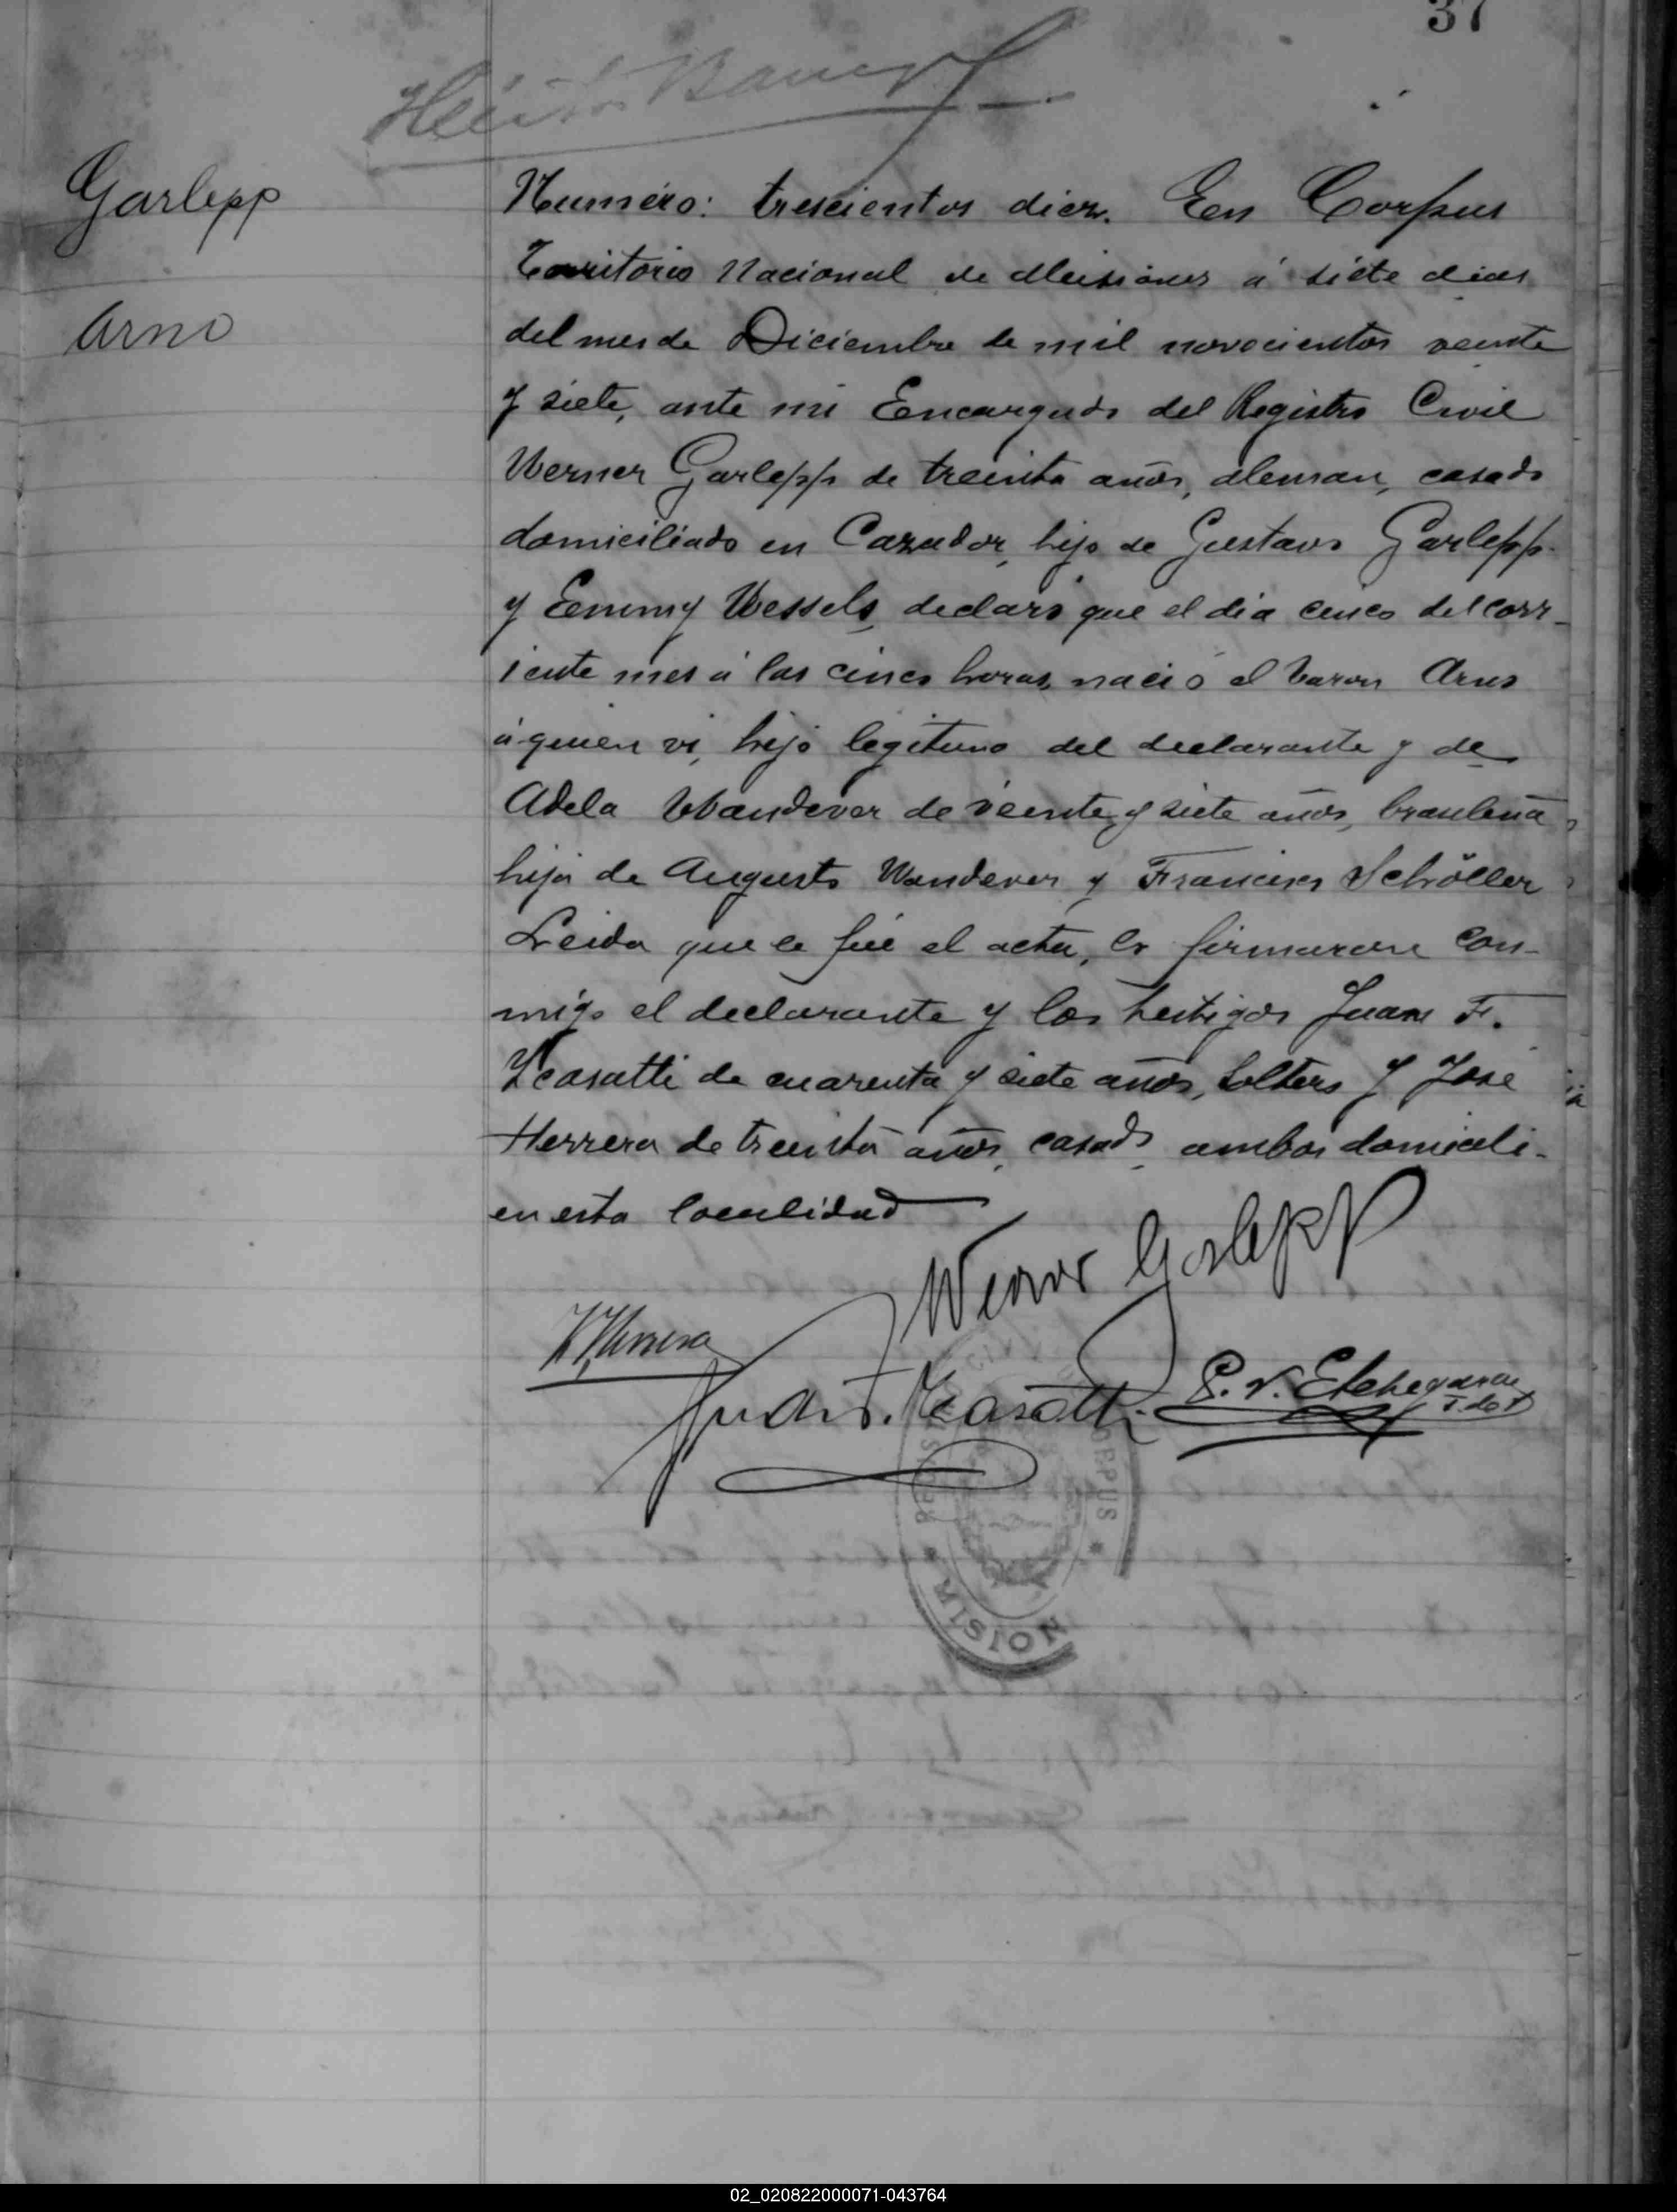 37
Garlepp
Arno
Numéro: trescientos diez. En Corpus
Territorio Nacional de Misiones á siete dias
del mes de Diciembre de mil novecientos veinte
y siete, ante mi Encargado del Registro Civil
Werner Garlepp de treinta años, aleman, casado
domiciliado en Cazador, hijo de Gustavo Garlepp
y Emmy Wessels, declaró que el dia cinco del corr-
iente mes á las cinco horas, nació el varon Arno
á quien vi, hijo legitimo del declarante y de
Adela Wandever de veinte y siete años, brasileña
hija de Augusto Wandever y Francisca Schöller
Leida que le fué el acta, la firmaron con-
migo el declarante y los testigos Juan F.
Icasatti de cuarenta y siete años, soltero y José
Herrera de treinta años, casado, ambos domicili-
en esta localidad
Werner Garlepp
Herrera
Juan F. Icasatti
P. V. Etchegaray
CORPUS
MISION
02_020822000071-043764